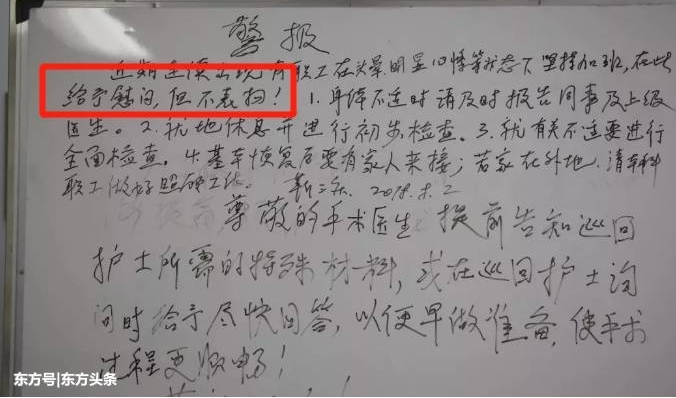 警报
近期连续出现有职工在头晕明显心悸等状态下坚持加班,在此
给予慰问,但不表扬! 1.身体不适时请及时报告同事及上级
医生。2.就地休息并进行初步检查。3.就有关不适要进行
全面检查。4.基本恢复后要有家人来接;若家在外地,请本科
职工做好照顾工作。 靳三庆 2018.8.2
尊敬的手术医生 提前告知巡回
护士所需的特殊材料,或在巡回护士询
问时给予尽快回答,以便早做准备,使手术
过程更顺畅!
东方号|东方头条